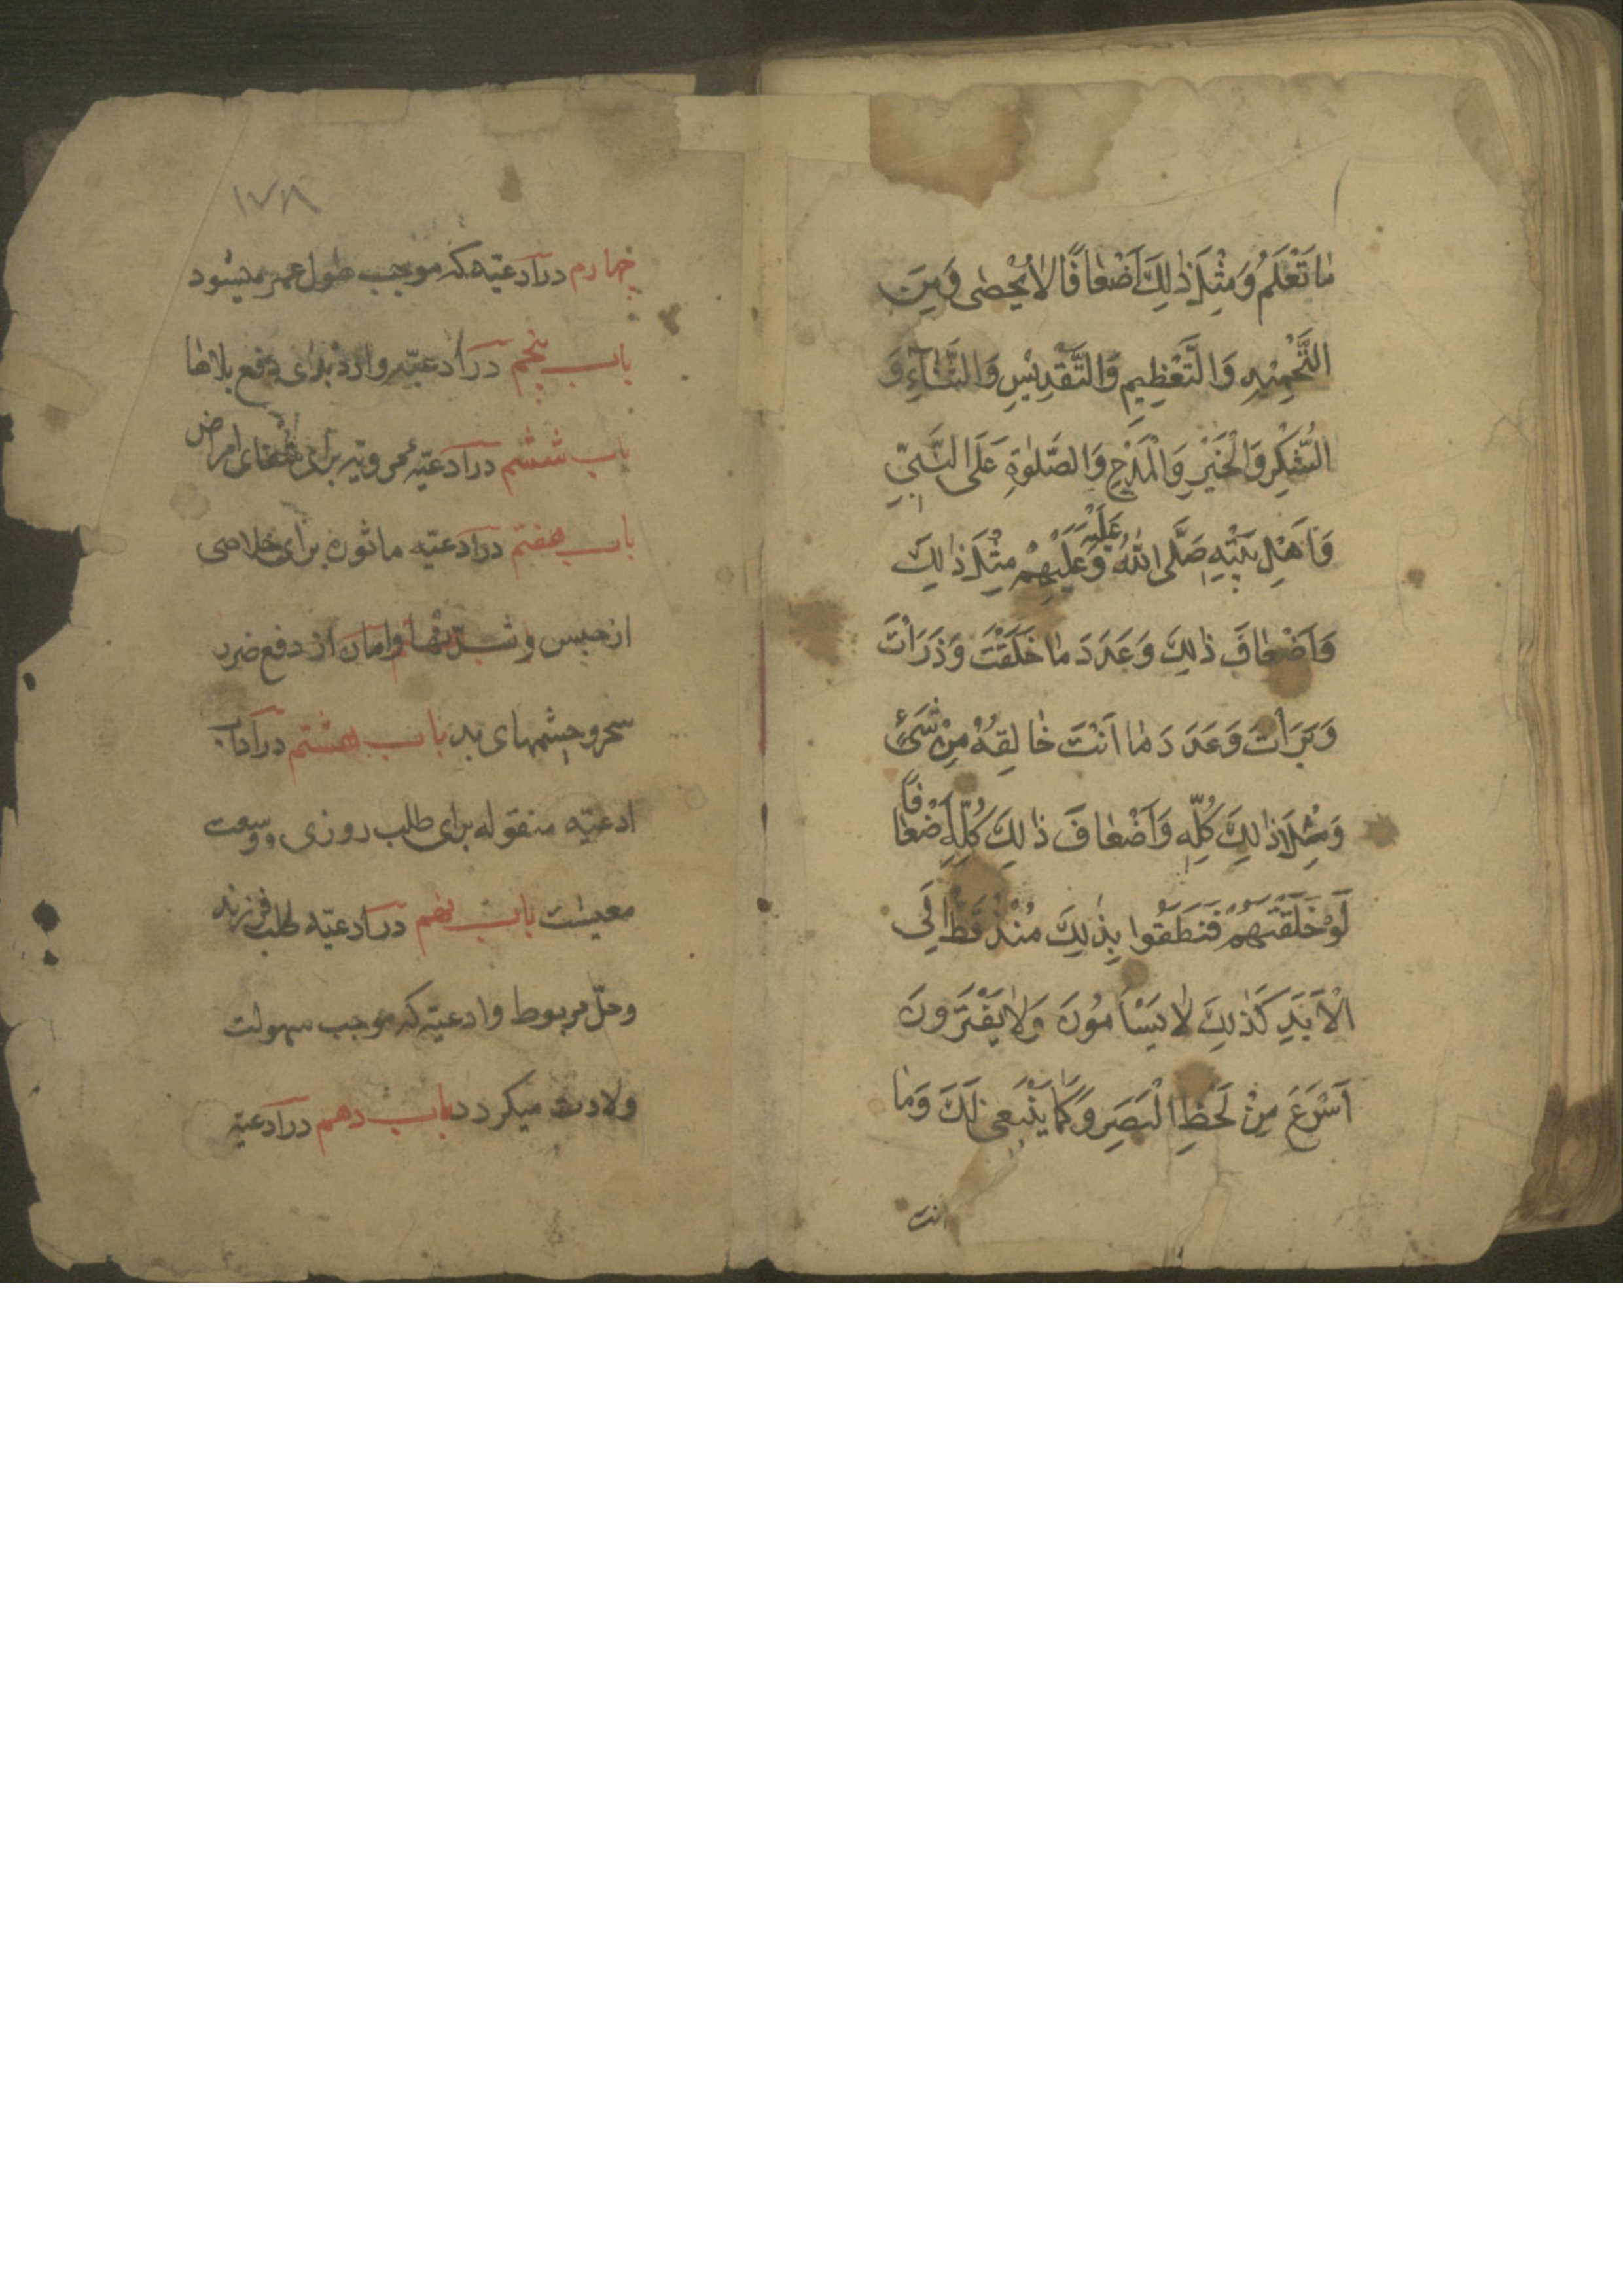 مٰا تَعْلَمُ وَمِثْلَ ذٰلِكَ اَضْعٰافًا لاٰ يُحْصٰى وَمِنَ
التَّحْمِيْدِ وَالتَّعْظِيمِ وَالتَّقْدِيْسِ وَالثَّنٰآءِ وَ
الشُّكْرِ وَالْخَيْرِ وَالْمَدْحِ وَالصَّلٰوةِ عَلَى النَّبِيِّ
وَاَهْلِ بَيْتِهِ صَلَّى اللهُ عَلَيْهِ وَعَلَيْهِمْ مِثْلَ ذٰلِكَ
وَاَضْعٰافَ ذٰلِكَ وَعَدَدَ مٰا خَلَقْتَ وَذَرَاْتَ
وَبَرَاْتَ وَعَدَدَ مٰا اَنْتَ خٰالِقُهُ مِنْ شَىْءٍ
وَمِثْلَ ذٰلِكَ كُلِّهِ وَاَضْعٰافَ ذٰلِكَ كُلِّهِ اَضْعٰافًا
لَوْ خَلَقْتَهُمْ فَنَطَقُوا بِذٰلِكَ مُنْذُ قَطُّ اِلَى
الْاَبَدِ كَذٰلِكَ لاٰ يَسْاَمُونَ وَلاٰ يَفْتَرُونَ
اَسْرَعَ مِنْ لَحْظِ الْبَصَرِ وَكَمٰا يَنْبَغى لَكَ وَمٰا
انت
١٧٨
چهارم در ادعیّه که موجب طول عمر میشود
باب پنجم در ادعیّه وارده برای دفع بلاها
باب ششم در ادعیّه مرویه برای شفای امراض
باب هفتم در ادعیّه ماثوره برای خلاصی
از حبس و شدّتها و امان از دفع ضرر
سحر و چشمهای بد باب هشتم در آداب
ادعیّه منقوله برای طلب روزی و وسعت
معیشت باب نهم در ادعیّه طلب فرزند
و حلّ مربوط و ادعیّه که موجب سهولت
ولادت میکردد باب دهم در ادعیّه